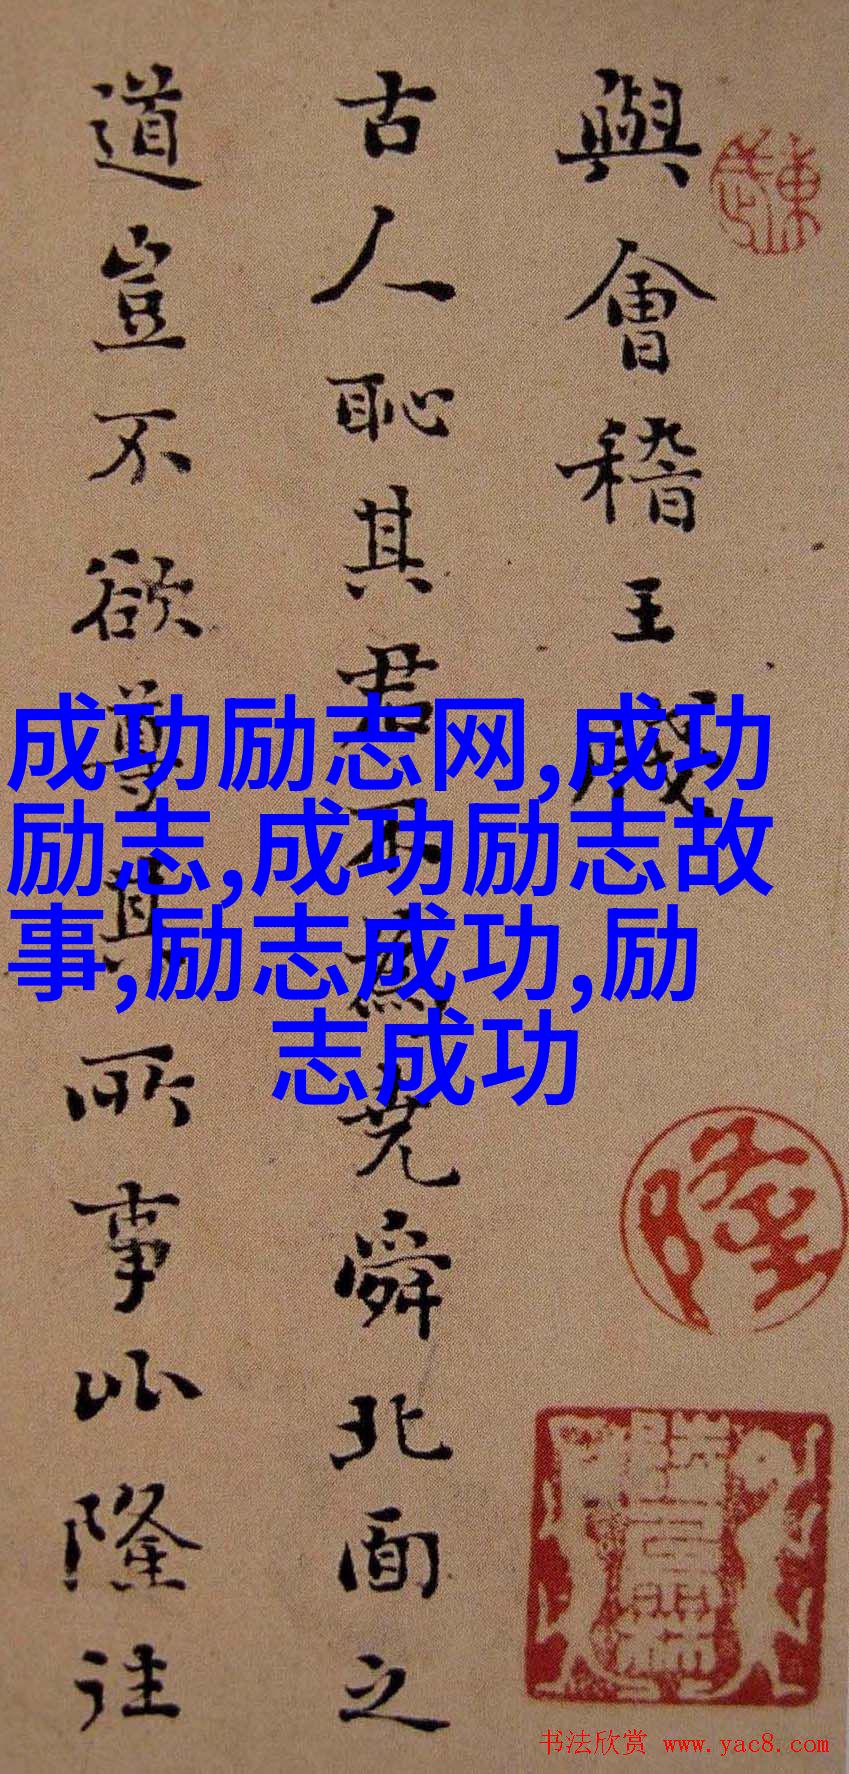 與會稽王牋
古人恥其君不爲堯舜北面之
道豈不欲尊其所事比隆往
成功励志网,成功
励志,成功励志故
事,励志成功,励
志成功
隆
书法欣赏 www.yac8.com